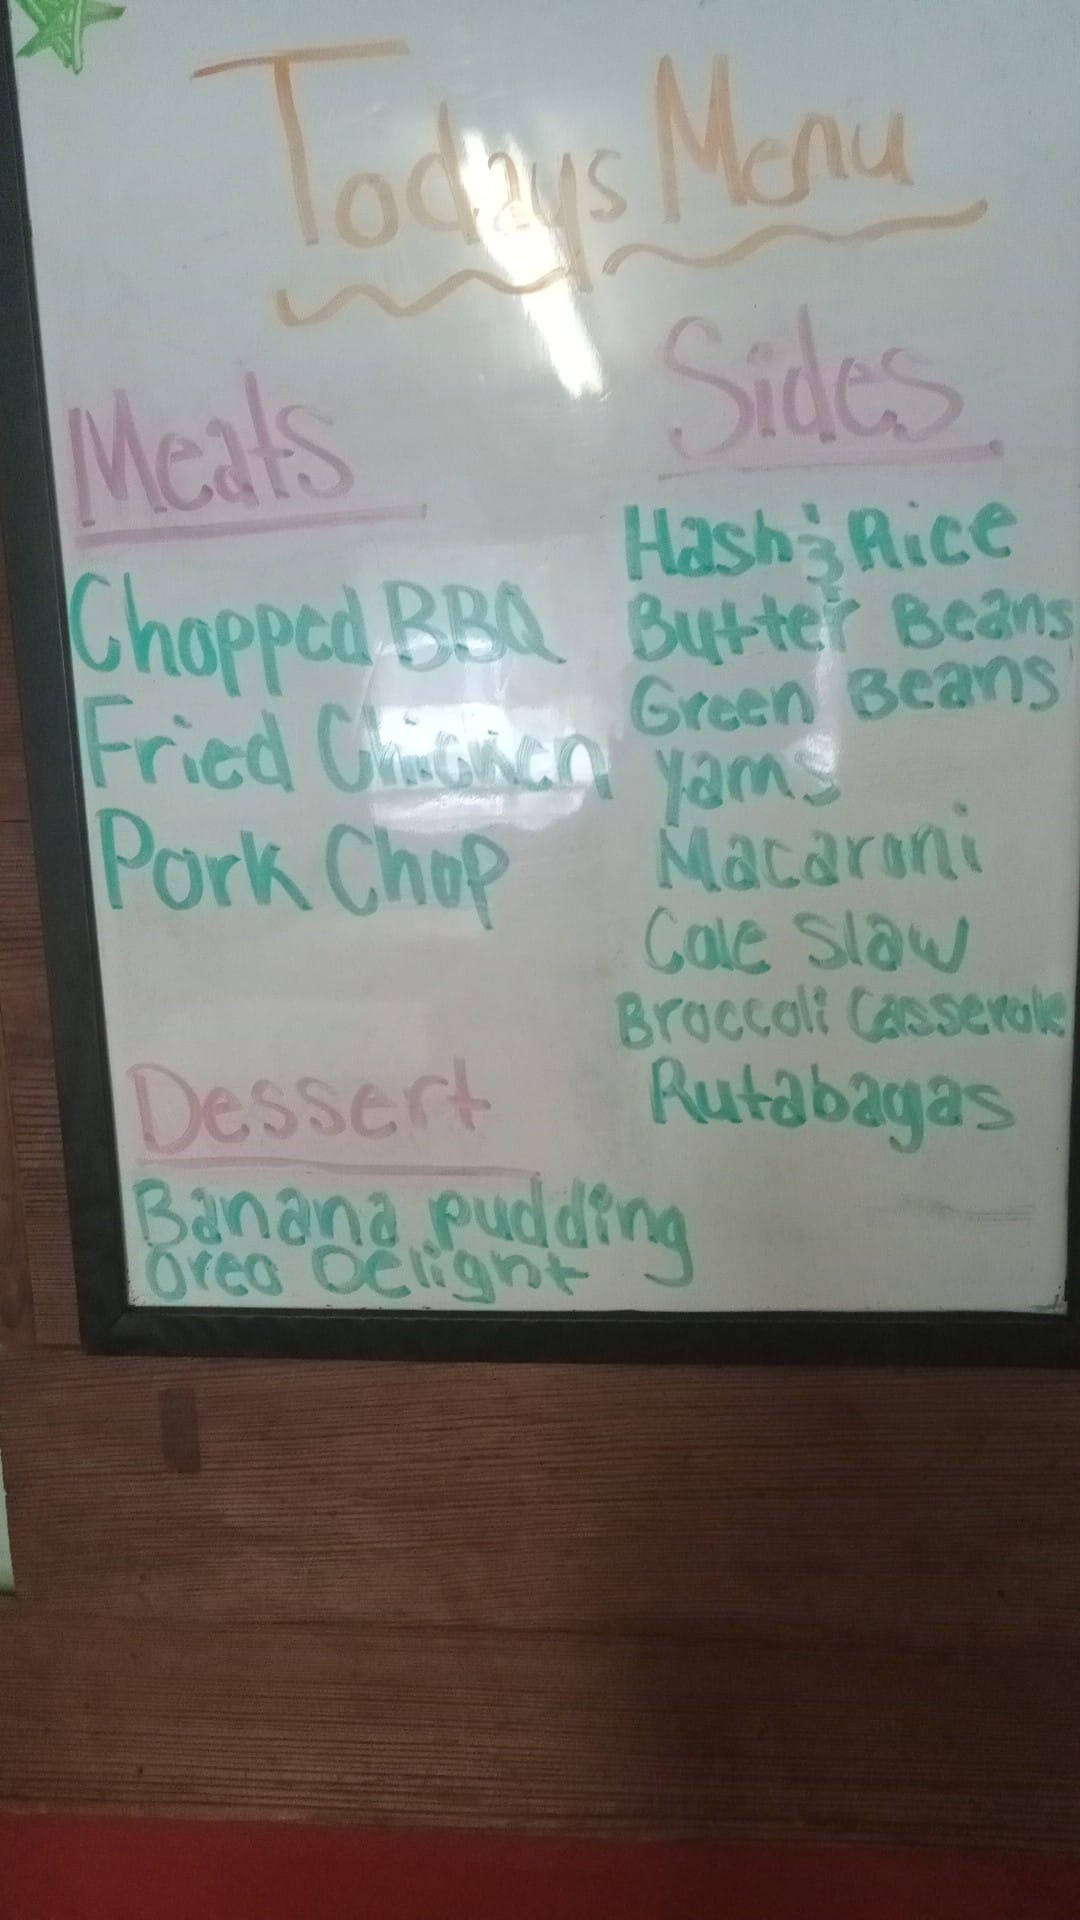 Todays Menu
Meats
Chopped BBQ
Fried Chicken
Pork Chop
Sides
Hash & Rice
Butter Beans
Green Beans
Yams
Macaroni
Cole Slaw
Broccoli Casserole
Rutabagas
Dessert
Banana pudding
Oreo Delight